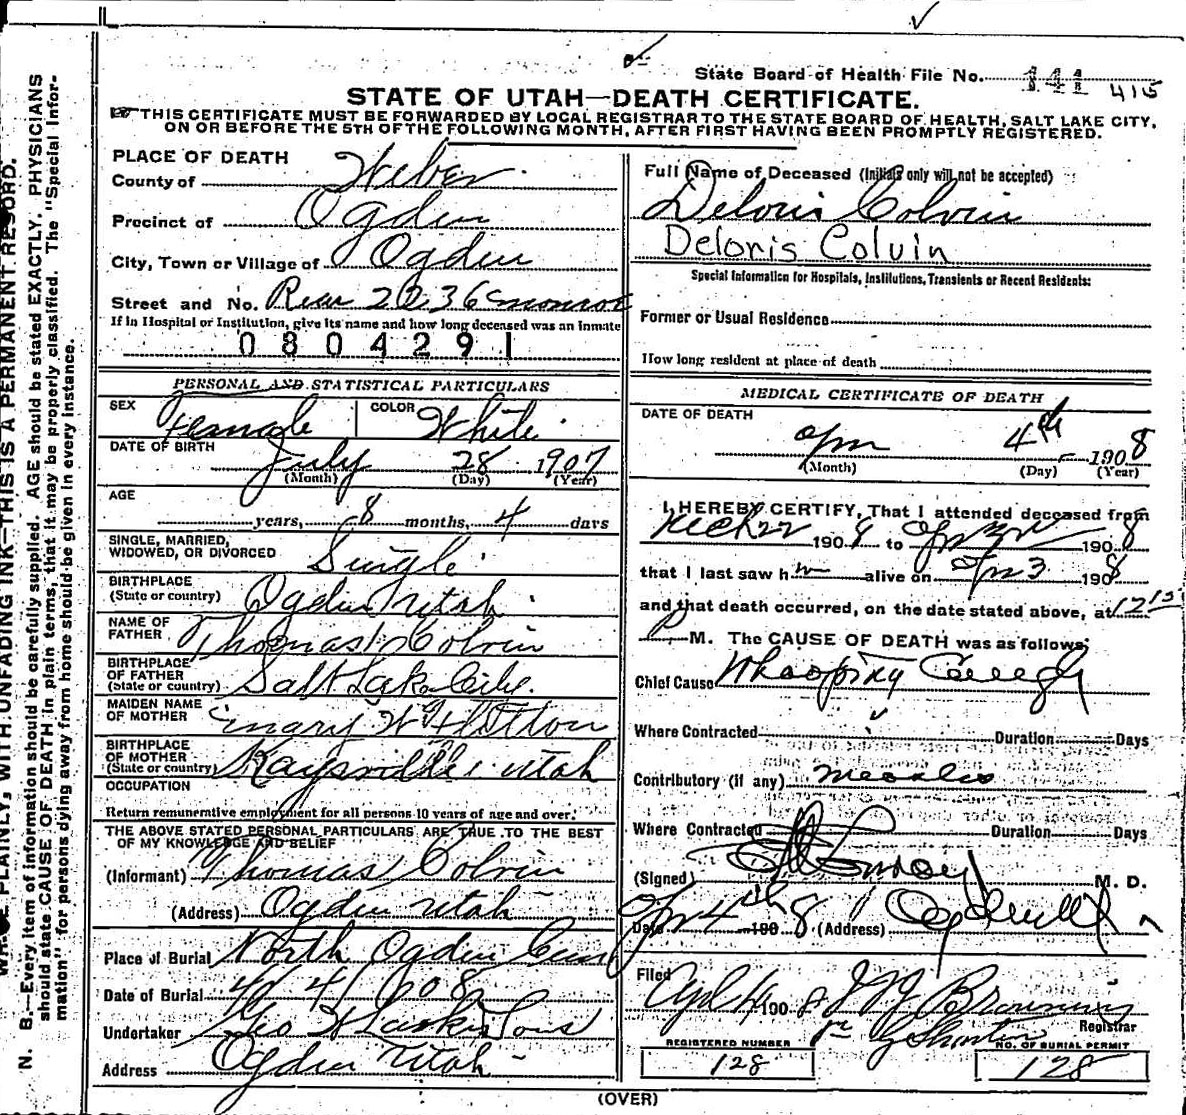 State Board of Health File No. 141 415
STATE OF UTAH—DEATH CERTIFICATE.
THIS CERTIFICATE MUST BE FORWARDED BY LOCAL REGISTRAR TO THE STATE BOARD OF HEALTH, SALT LAKE CITY,
ON OR BEFORE THE 5TH OF THE FOLLOWING MONTH, AFTER FIRST HAVING BEEN PROMPTLY REGISTERED.
PLACE OF DEATH
County of Weber
Precinct of Ogden
City, Town or Village of Ogden
Street and No. Rear 2236 Monroe
If in Hospital or Institution, give its name and how long deceased was an Inmate
0804291
PERSONAL AND STATISTICAL PARTICULARS
SEX Female COLOR White
DATE OF BIRTH July 28 1907
(Month) (Day) (Year)
AGE
years, 8 months, 4 days
SINGLE, MARRIED,
WIDOWED, OR DIVORCED Single
BIRTHPLACE
(State or country) Ogden Utah
NAME OF
FATHER Thomas Colvin
BIRTHPLACE
OF FATHER
(State or country) Salt Lake City.
MAIDEN NAME
OF MOTHER Mary
BIRTHPLACE
OF MOTHER
(State or country) Kaysville, Utah
OCCUPATION
Return remunerative employment for all persons 10 years of age and over.
THE ABOVE STATED PERSONAL PARTICULARS ARE TRUE TO THE BEST
OF MY KNOWLEDGE AND BELIEF
(Informant) Thomas Colvin
(Address) Ogden Utah
Place of Burial North Ogden Cem
Date of Burial 4/4/1908
Undertaker Geo W Larkin Sons
Address Ogden Utah
Full Name of Deceased (Initials only will not be accepted)
Deloris Colvin
Deloris Colvin
Special Information for Hospitals, Institutions, Transients or Recent Residents:
Former or Usual Residence
How long resident at place of death
MEDICAL CERTIFICATE OF DEATH
DATE OF DEATH
Apr 4th 1908
(Month) (Day) (Year)
I HEREBY CERTIFY, That I attended deceased from
1908 to Apr 3rd 1908
that I last saw h alive on Apr 3 1908
and that death occurred, on the date stated above, at 12 15
P M. The CAUSE OF DEATH was as follows;
Chief Cause Whooping Cough
Where Contracted Duration Days
Contributory (if any) Measles
Where Contracted Duration Days
(Signed) M. D.
Date Apr 4th 1908 (Address) Ogden
Filed
Apl 4 1908 Browning
Registrar
REGISTERED NUMBER
128
NO. OF BURIAL PERMIT
128
(OVER)
PLAINLY, WITH UNFADING INK—THIS IS A PERMANENT RECORD.
N. B.—Every item of information should be carefully supplied. AGE should be stated EXACTLY. PHYSICIANS
should state CAUSE OF DEATH in plain terms, that it may be properly classified. The "Special Infor-
mation" for persons dying away from home should be given in every instance.